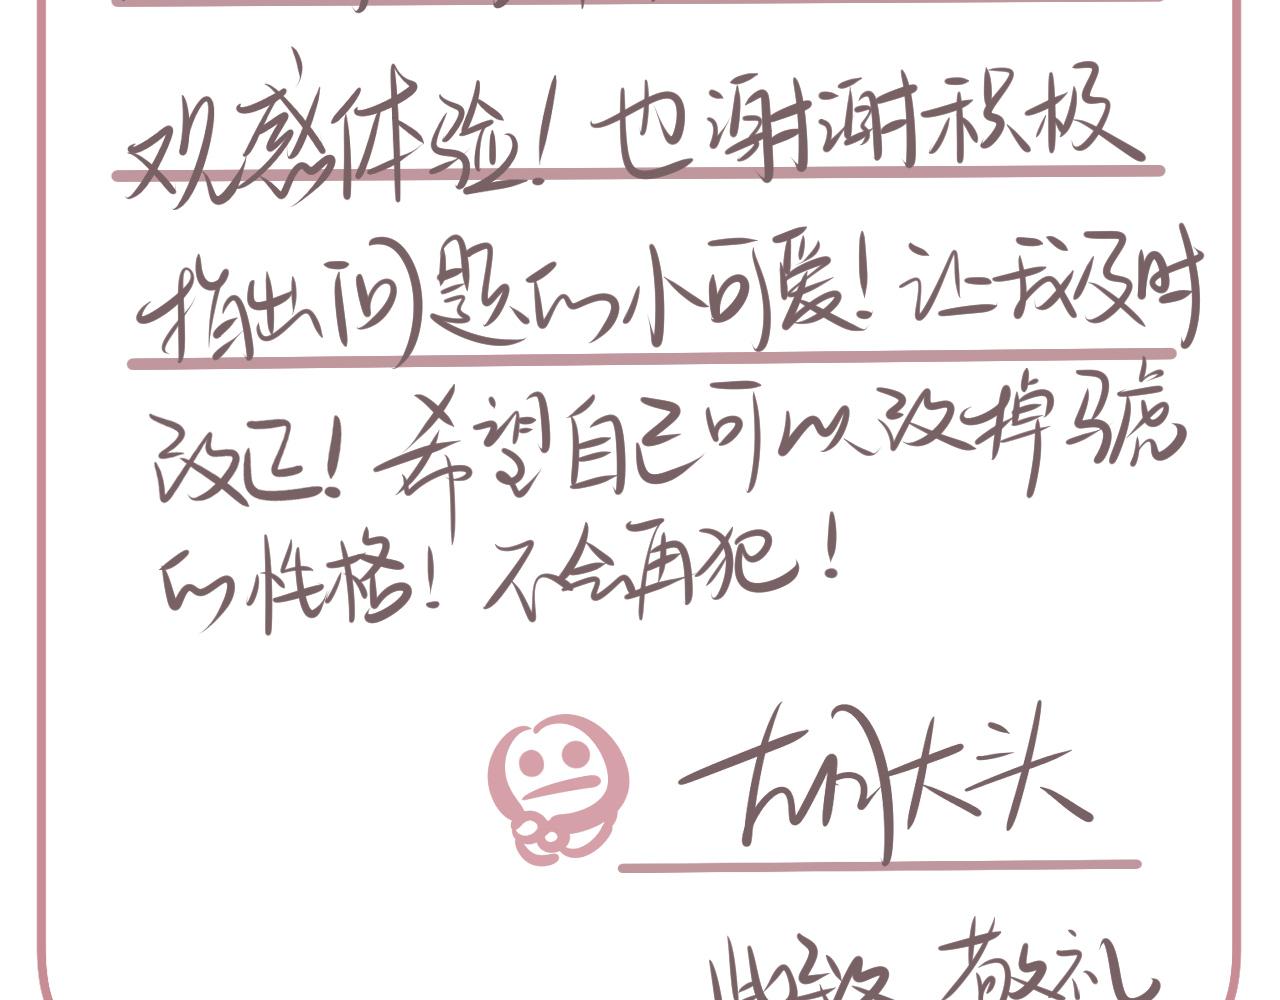 观感体验！也谢谢积极
指出问题的小可爱！让我及时
改正！希望自己可以改掉马虎
的性格！不会再犯！
胡大头
此致 敬礼